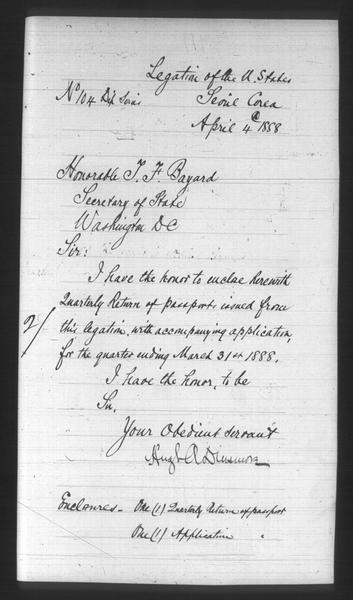 Legation of the U. States
No 104 Dip Series
Seoul Corea
April 4th 1888
Honorable T. F. Bayard
Secretary of State
Washington DC
Sir:
I have the honor to enclose herewith
Quarterly Return of passports issued from
this legation, with accompanying application,
for the quarter ending March 31st 1888.
2/
I have the honor, to be
Sir,
Your Obedient Servant
Hugh A Dinsmore
Enclosures - One (1) Quarterly Return of passport
One (1) Application "